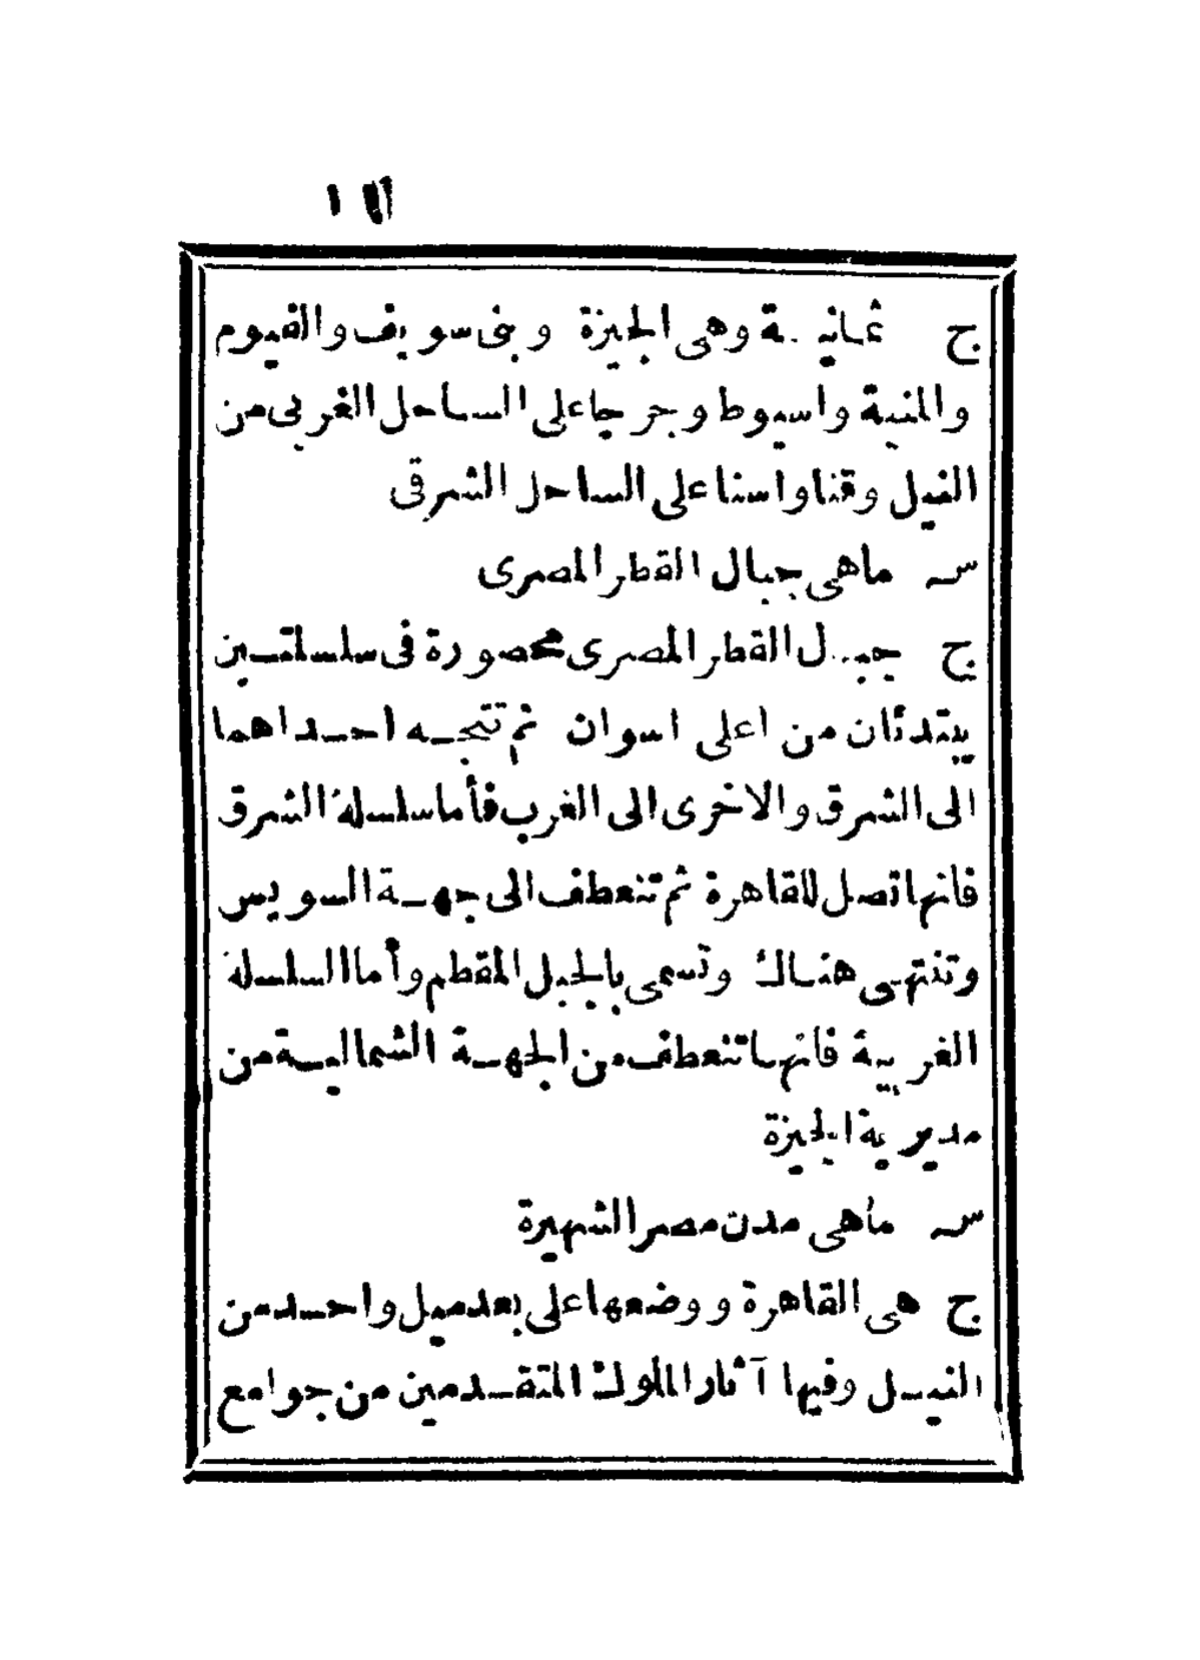 ج ثمانية وهى الجيزة وبنى سويف والفيوم
والمنية واسيوط وجرجا على الساحل الغربى من
النيل وقنا واسنا على الساحل الشرقى
س ما هى جبال القطر المصرى
ج جبال القطر المصرى محصورة فى سلسلتين
يبتدئان من اعلى اسوان ثم تتجه احداهما
الى الشرق والاخرى الى الغرب فأما سلسلة الشرق
فانها تصل للقاهرة ثم تنعطف الى جهة السويس
وتنتهى هناك وتسمى بالجبل المقطم وأما السلسلة
الغربية فانها تنعطف من الجهة الشمالية من
مديرية الجيزة
س ما هى مدن مصر الشهيرة
ج هى القاهرة ووضعها على بعد ميل واحد من
النيل وفيها آثار الملوك المتقدمين من جوامع